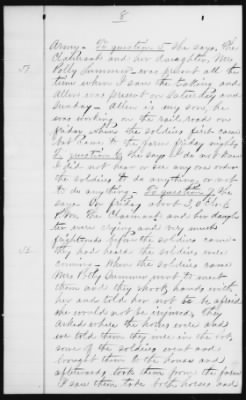 8
Army. To question 5 she says, The
Claimant and her daughter, Mrs
Polly Summer was present all the
time when I saw the taking and
Allen was present on Saturday and
Sunday - Allen is my son, he
was working on the rail road on
friday when the soldiers first came
but came to the farm friday night.
To question 6 she says I do not know
I did not hear or see any one order
the soldiers to do anything, or not
to do anything. To question 7 she
says On friday about 3, O'clock
P.M. The Claimant and her daugh
ter were crying and very much
frightened before the soldiers came
they had heard the soldiers were
coming - When the soldiers came
Mrs Polly Summer went to meet
them and they shook hands with
her and told her not to be afraid
she would not be injured, they
asked where the horses were and
we told them they were in the lot,
some of the soldiers went and
brought them to the house and
afterwards took them from the farm
I saw them take both horses and